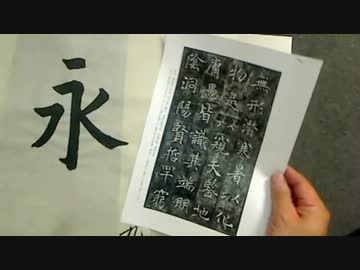 無形潛寒暑以化
物是以窺天鑒地
庸愚皆識其端明
陰洞陽賢哲罕窮
永